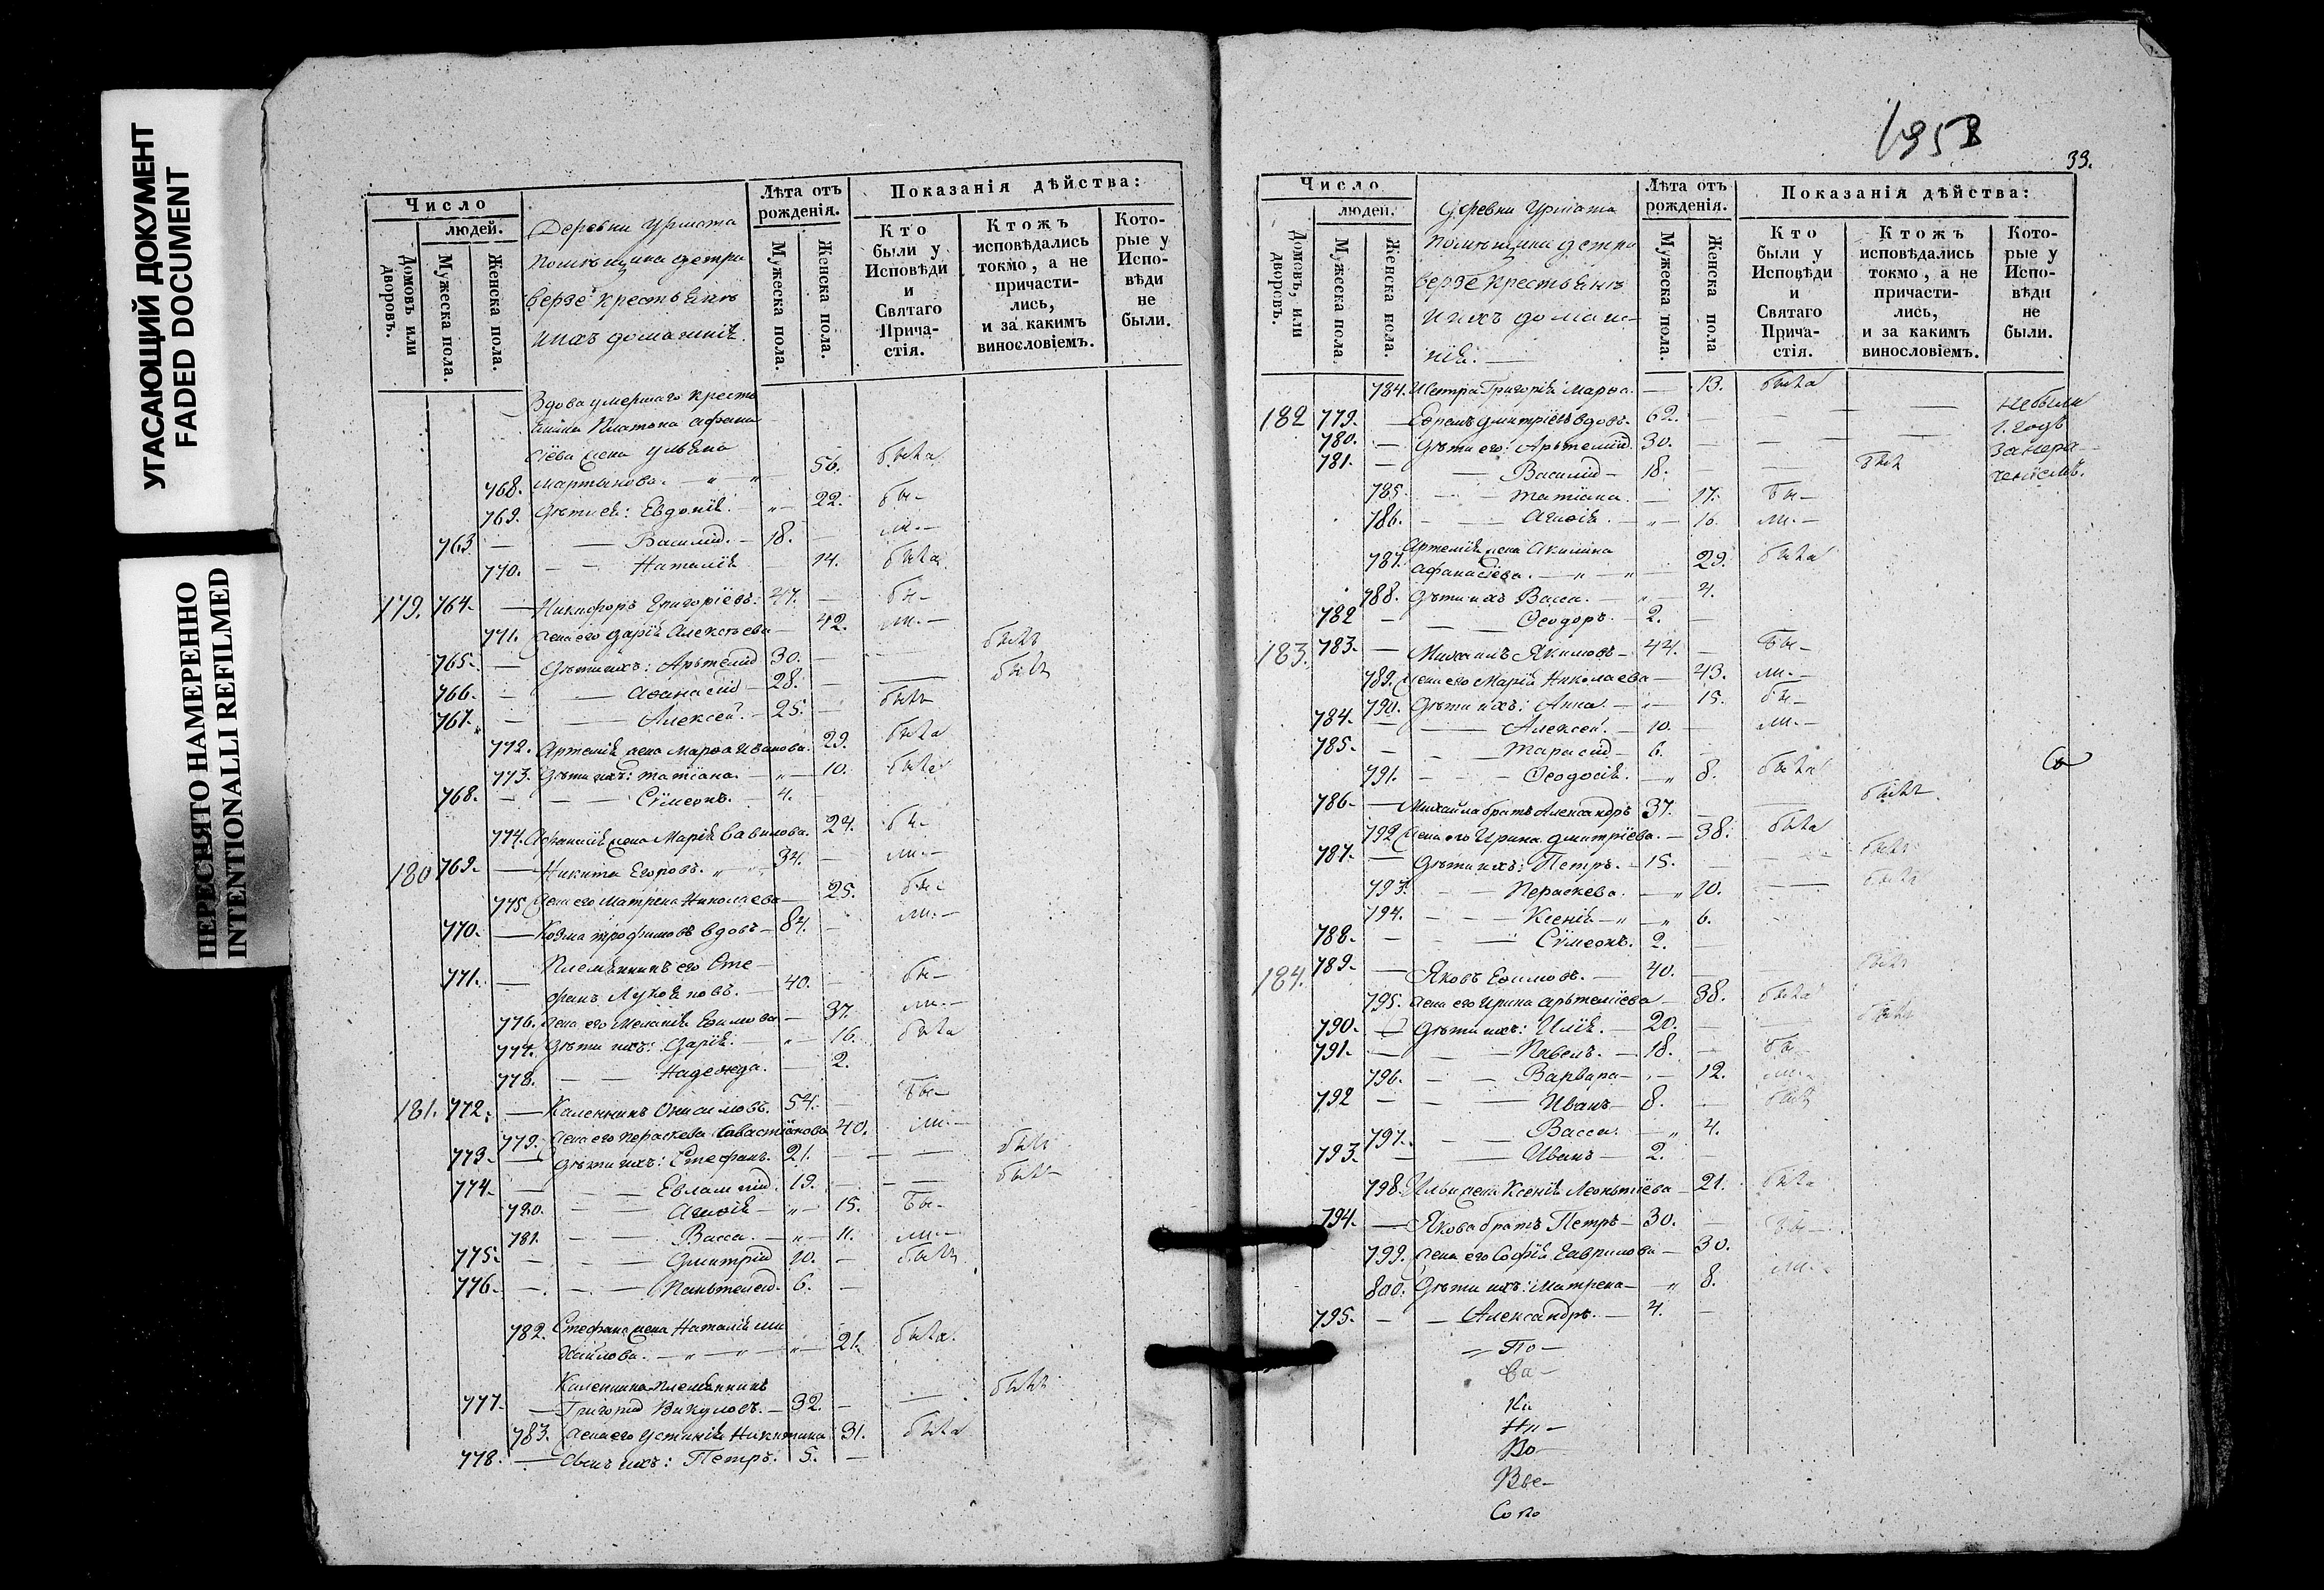 УГАСАЮЩИЙ ДОКУМЕНТ
FADED DOCUMENT
ПЕРЕСНЯТО НАМЕРЕННО
INTENTIONALLI REFILMED
Число
людей.
Домовъ или дворовъ.
Мужеска пола.
Женска пола.
Деревни Урмата
помѣщика
крестьяне
ихъ домашніе.
Лѣта отъ рожденія.
Мужеска пола.
Женска пола.
Показанія дѣйства:
Кто были у Исповѣди и Святаго Причастія.
Ктожъ исповѣдались токмо, а не причастились, и за какимъ винословіемъ.
Которые у Исповѣди не были.
Вдова умершаго кресть
янина Платона Афана
сіева жена Ульяна
768. Мартынова. 56. была
769. Дѣти ея: Евдокія. 22. бы-
763. Василій. 18. ли.-
770. Наталія 14. была
179. 764. Никифоръ Григоріевъ. 47. бы-
771. жена его Дарія Алексѣева 42. ли.-
765. Дѣти их: Артемій 30. былъ
766. Афанасій 28. былъ
767. Алексей. 25. былъ
772. Артемія жена Марѳа Иванова. 29. была
773. Дѣти ихъ: Татіана. 10. была
768. Сѵмеонъ. 4.
774. Афанасія жена Марія Савинова. 24. бы-
180 769. Никита Егоровъ. 34. ли.-
775. жена его Матрена Николаева 25. бы-
770. Козма Трофимовъ вдовъ 84. ли.-
771. Племянникъ его Сте-
фанъ 40. бы-
776. жена его Меланія Ефимова 37. ли.-
777. Дѣти ихъ: Дарія. 16. была
778. Надежда. 2.
181. 772. Каленникъ Онисимовъ. 54. бы-
779. жена его Пераскева Савастіанова 40. ли.-
773. Дѣти ихъ: Стефанъ. 21. былъ
774. Евлампій. 19. былъ
780. Агафія 15. бы-
781. Васса. 11. ли.-
775. Дмитрій 10. былъ
776. Пантелей. 6.
782. Стефана жена Наталія Ми
хайлова. 21. была.
Каленника племянникъ
777. Григорій Викуловъ. 32. былъ
783. жена его Устинія Никитина 31. была
778. Сынъ ихъ: Петръ. 5.
1958
33.
Число
людей.
Домовъ, или дворовъ.
Мужеска пола.
Женска пола.
Деревни Урмата
помѣщика
крестьяне
и ихъ домаш-
ніе.
Лѣта отъ рожденія.
Мужеска пола.
Женска пола
Показанія дѣйства:
Кто были у Исповѣди и Святаго Причастія.
Ктожъ исповѣдались токмо, а не причастились, и за какимъ винословіемъ.
Которые у Исповѣди не были.
784. Сестра Григорія Марѳа. 13. была
182 779. Ефремъ Дмитріевъ вдовъ 62. небыли
780. Дѣти его: Артемій 30. 1. годъ
781. Василій 18. былъ
за нера-
ченіемъ.
785. Татіана. 17. бы-
786. Агафія. 16. ли.-
Артемія жена Акилина
787. Афанасіева. 29. была
788. Дѣти ихъ Васса. 4.
782 Ѳеодоръ. 2.
183. 783. Михаилъ Якимовъ 44. бы-
789. жена его Марія Николаева 43. ли.-
790. Дѣти ихъ: Анна. 15. бы-
784. Алексей. 10. ли.-
785. Тарасій 6.
791. Ѳеодосія. 8. была
786. Михайла братъ Александръ 37. былъ
792. жена его Ирина Дмитріева. 38. была
787. Дѣти ихъ: Петръ. 15. былъ
793. Пераскева. 10. была
794. Ксенія 6.
788. Сѵмеонъ. 2.
184. 789. Яковъ Ефимовъ. 40. былъ
795. жена его Ирина Артемиева 38. была
790. Дѣти ихъ: Илія. 20. былъ
791. Павелъ. 18. бы-
796. Варвара 12. ли.-
792 Иванъ 8. былъ
797. Васса. 4.
793. Иванъ 2.
798. Ильи жена Ксенія Леонтіева 21. была
794. Якова братъ Петръ 30. бы-
799. жена его Софія Гаврилова 30. ли.-
800. Дѣти ихъ: Матрена 8.
795. Александръ. 4.
По-
Ва-
Ки
Ни-
Во-
Вве-